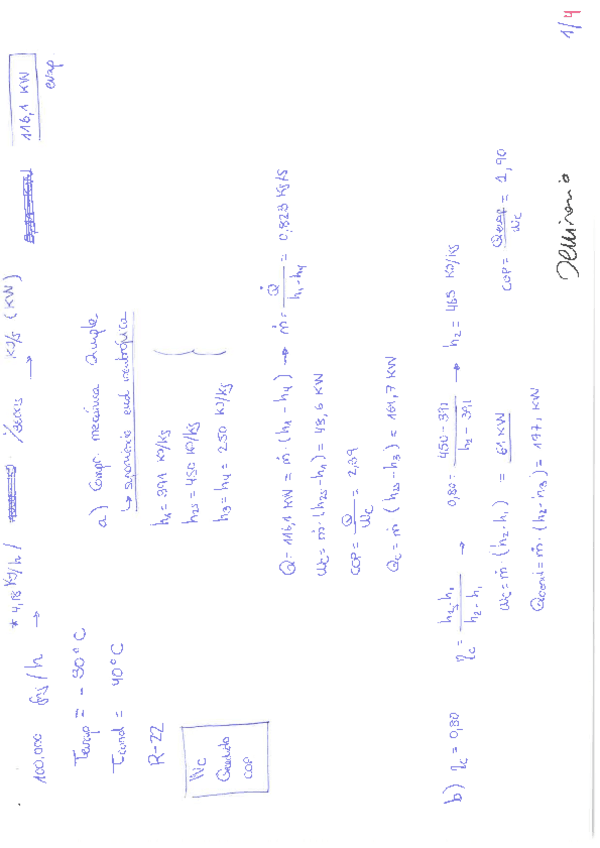 100.000 frig/h * 4,18 kJ/h / /3600s → kJ/s (kW) 116,1 kW
evap.
Tevap = -30°C
Tcond = 40°C
R-22
Wc
Qcedido
COP
a) Compr. mecánica simple
↳ suponiendo evol isentrópica
h1 = 391 kJ/kg
h2s = 450 kJ/kg
h3 = h4 = 250 kJ/kg
Q = 116,1 kW = ṁ · (h1 - h4) → ṁ = Q̇ / (h1 - h4) = 0,823 kg/s
Wc = ṁ · (h2s - h1) = 48,6 kW
COP = Q / Wc = 2,39
Qc = ṁ (h2s - h3) = 164,7 kW
b) ηc = 0,80 ηc = (h2s - h1) / (h2 - h1) → 0,80 = (450 - 391) / (h2 - 391) → h2 = 465 kJ/kg
Wc = ṁ · (h2 - h1) = 61 kW COP = Qevap / Wc = 1,90
Qcond = ṁ · (h2 - h3) = 177,1 kW
Seminario
1/4